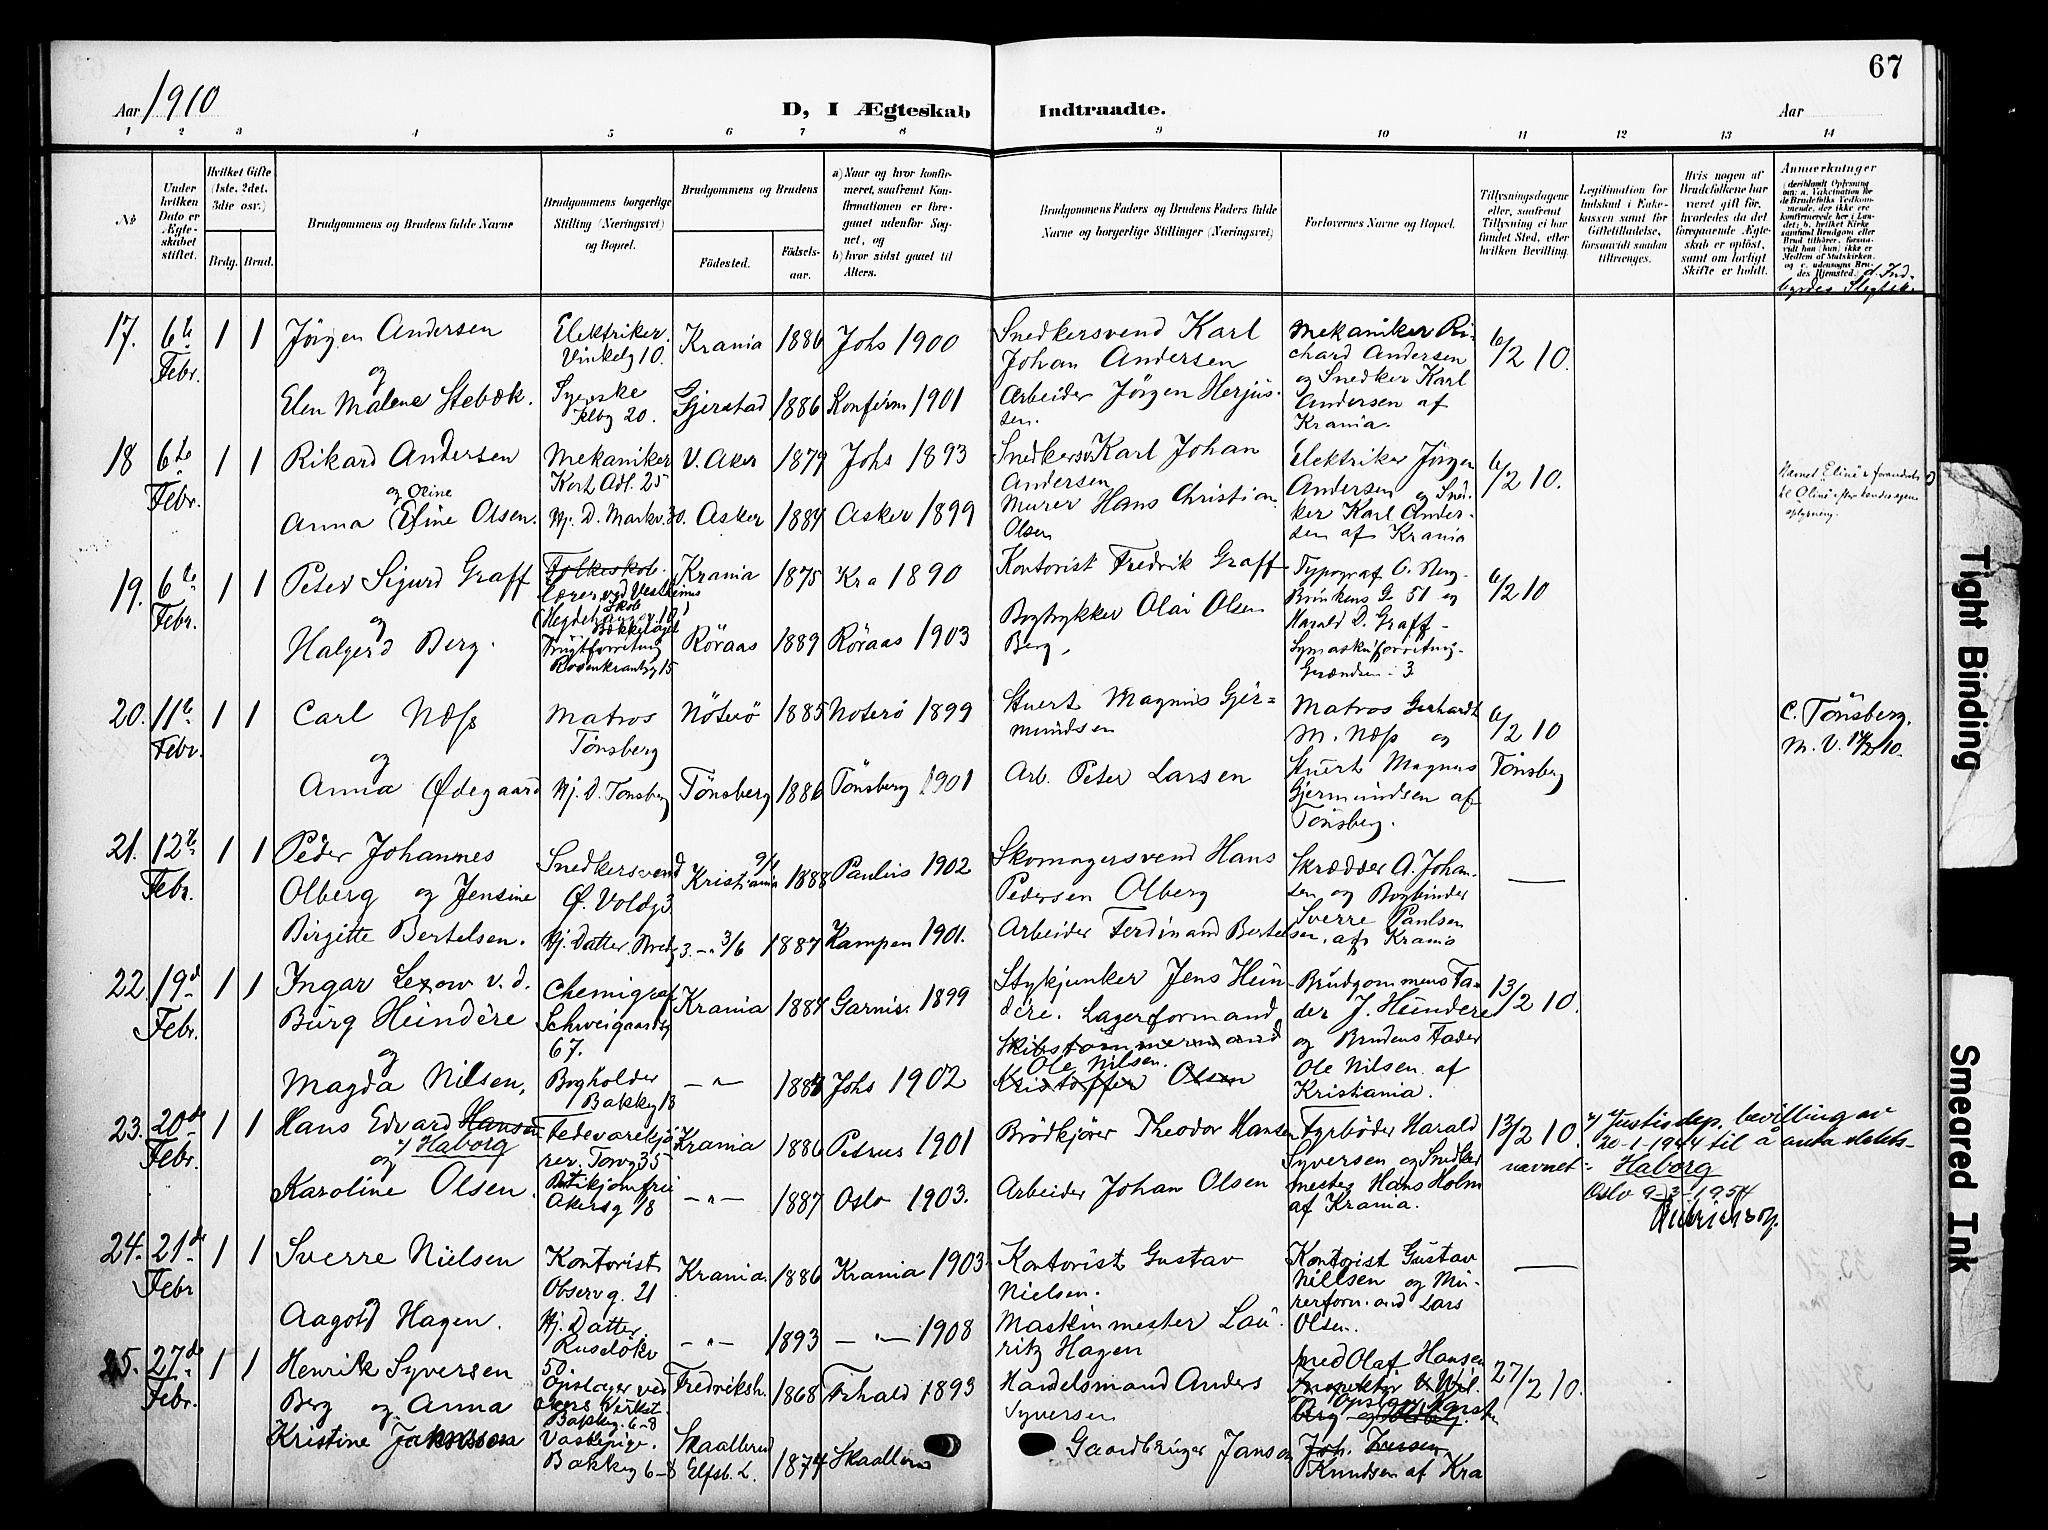 67
Aar 1910
D, I Ægteskab Indtraadte.
Aar
1 2 3 4 5 6 7 8 9 10 11 12 13 14
No
Under hvilken Dato er Ægteskabet stiftet.
Hvilket Gifte (1ste, 2det, 3die osv.)
Brdg. Brud.
Brudgommens og Brudens fulde Navne
Brudgommens borgerlige Stilling (Næringsvei) og Bopæl.
Brudgommens og Brudens
Födested. Födselsaar.
a) Naar og hvor konfirmeret, saafremt Konfirmationen er foregaaet udenfor Sognet, og
b) hvor sidst gaaet til Alters.
Brudgommens Faders og Brudens Faders fulde Navne og borgerlige Stillinger (Næringsvei)
Forlovernes Navne og Bopæl.
Tillysningsdagene eller, saafremt Tillysning ei har fundet Sted, efter hvilken Bevilling.
Legitimation for Indskud i Enkekassen samt for Giftetilladelse, forsaavidt saadan tiltrænges.
Hvis nogen af Brudefolkene har været gift før, hvorledes da det foregaaende Ægteskab er opløst, samt om lovligt Skifte er holdt.
Anmerkninger
(deriblandt Oplysning om: a. Vakcination for de Brudefolks Vedkommende, der ikke ere konfirmerede her i Landet; b. hvilket Kirkesamfund Brudgom eller Brud tilhører, forsaavidt han (hun) ikke er Medlem af Statskirken, og c. udensogns Brudes Hjemsted. d. Indbyrdes Slegtsk.
17. 6te Febr. 1 1 Jörgen Andersen
Elektriker. Vinkelg 10. Krania 1886 Johs 1900
Snedkersvend Karl Johan Andersen
Mekaniker Richard Andersen og Snedker Karl Andersen af Krania.
6/2 10.
og
Elen Malene Stebæk. Syerske 20. Gjerstad 1886 Konfirm 1901
Arbeider Jörgen Herjussen.
18 6te Febr. 1 1 Rikard Andersen
Mekaniker Kort Adl. 25 V. Aker 1879 Johs 1893
Snedkersv Karl Johan Andersen
Elektriker Jörgen Andersen og Snedker Karl Andersen af Krania
6/2 10.
Navnet Eline er forandret til Oline efter hendes egen oplysning.
og Oline
Anna Eline Olsen. Hj. D. Markv. 30. Asker 1884 Asker 1899
Murer Hans Christian Olsen
19. 6te Febr. 1 1 Peter Sigurd Graff
Folkeskol. Lærer ved Vestheims Skole
Krania 1875 Kra 1890
Kontorist Fredrik Graff
Typograf O. Berg - Brinkens G 51 og Harald D. Graff - Symaskinforretning - Grændsen 3
6/2 10
og
Halgerd Berg. Röraas 1889 Röraas 1903
Bogtrykker Olai Olsen Berg.
20. 11te Febr. 1 1 Carl Næss
Matros Tønsberg Nöterö 1885 Noterö 1899
Stuert Magnus Gjermundsen
Matros Gerhardt M. Næss og Stuert Magnus Gjermundsen af Tönsberg.
6/2 10 Tönsberg
C. Tönsberg. M. V. 14/2 10.
og
Anna Ødegaard Hj. D. Tønsberg Tönsberg 1886 Tönsberg 1901
Arb. Peter Larsen
21. 12te Febr. 1 1 Peder Johannes Olberg og Jensine Birgitte Bertelsen.
Snedkersvend Ø. Voldg 3 Kristiania 9/1 1888 Paulus 1902
Skomagersvend Hans Pedersen Olberg
Skrædder A. Johansen og Bogbinder Sverre Paulsen af Krania
—
Hj. Datter. —"— 3/6 1887 Kampen 1901.
Arbeider Ferdinand Bertelsen.
22. 19de Febr. 1 1 Ingar Lexow v. d. Burg Heundere
Chemigraf Schweigaardsg 67. Krania 1884 Garnis. 1899
Stykjunker Jens Heundere. Lagerformand
Brudgommens Fader J. Heundere og Brudens Fader Ole Nilsen af Kristiania.
13/2 10.
og
Magda Nilsen. Bogholder Bakkeg 13 —"— Johs 1902
Skibstømmermand
Ole Nilsen.
Kristoffer Olsen
23. 20de Febr. 1 1 Hans Edvard Hansen x) Haborg
Fedevarekjörer. Torvg 35 Krania 1886 Petrus 1901
Brödkjörer Theodor Hansen
Fyrbøder Harald Syversen og Snedkermester Hans Holm af Krania.
13/2 10.
x) Justisdep. bevilling av 20-1-1944 til å anta slektsnavnet = Haborg
Oslo 9-3-1954
og
Karoline Olsen. Butikjomfru Akersg 78 —"— 1887 Oslo 1903.
Arbeider Johan Olsen
24. 21de Febr 1 1 Sverre Nielsen
Kontorist Observ g. 21 Krania. 1886 Krania 1903.
Kontorist Gustav Nielsen.
Kontorist Gustav Nielsen og Murerform. and Lars Olsen.
—
og
Aagot Hagen. Hj. Datter. Ruselökv 50 —"— 1893 —"— 1908
Maskinmester Lauritz Hagen
25. 27de Febr. 1 1 Henrik Syversen Berg og Anna Kristine
Opslager ved Akers Verkst. Bakkeg. 6-8 Fredriksh. 1868 Frhald 1893
Handelsmand Anders Syversen
Smed Olaf Hansen
27/2 10.
Vaskepige. Bakkeg 6-8 Elfsb. L. 1874
Gaardbruger Janson
Knudsen af Kra
Tight Binding
Smeared Ink